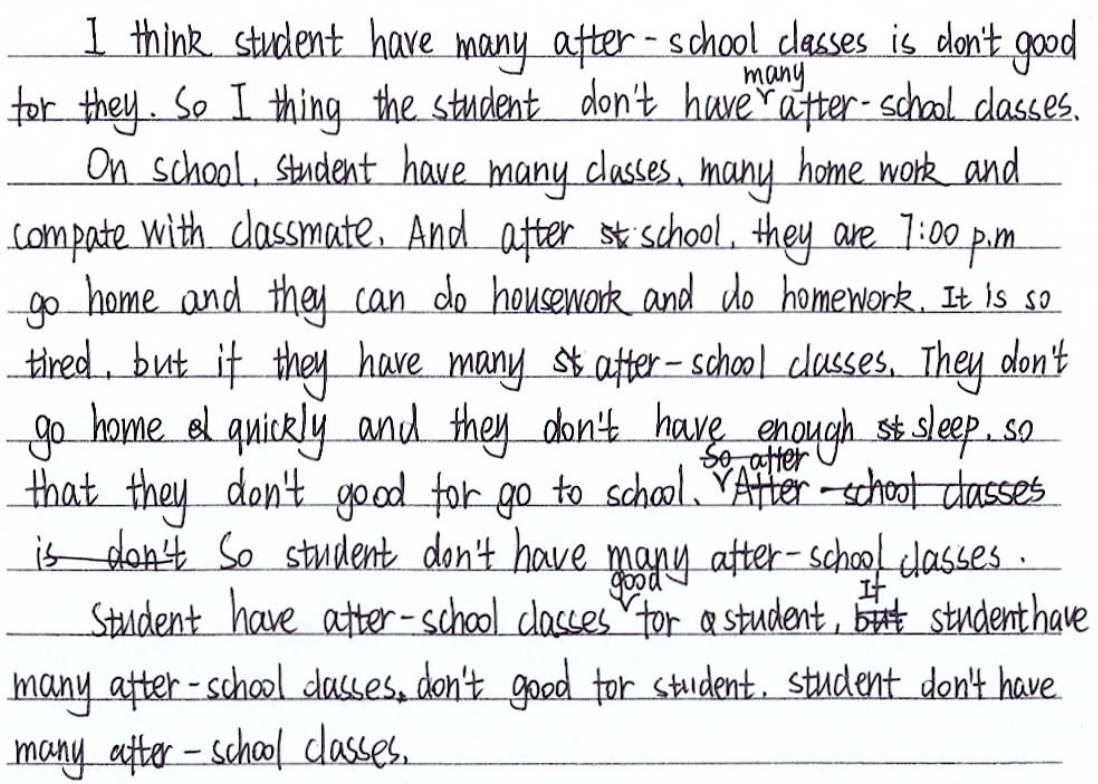 I think student have many after-school classes is don't good
for they. So I thing the student don't have many after-school classes.
On school, student have many classes, many home work and
compate with classmate. And after school, they are 7:00 p.m
go home and they can do housework and do homework. It is so
tired, but if they have many after-school classes. They don't
go home quickly and they don't have enough sleep, so
that they don't good for go to school. So after After-school classes
is don't So student don't have many after-school classes.
Student have after-school classes good for a student, If but student have
many after-school classes, don't good for student. student don't have
many after-school classes.